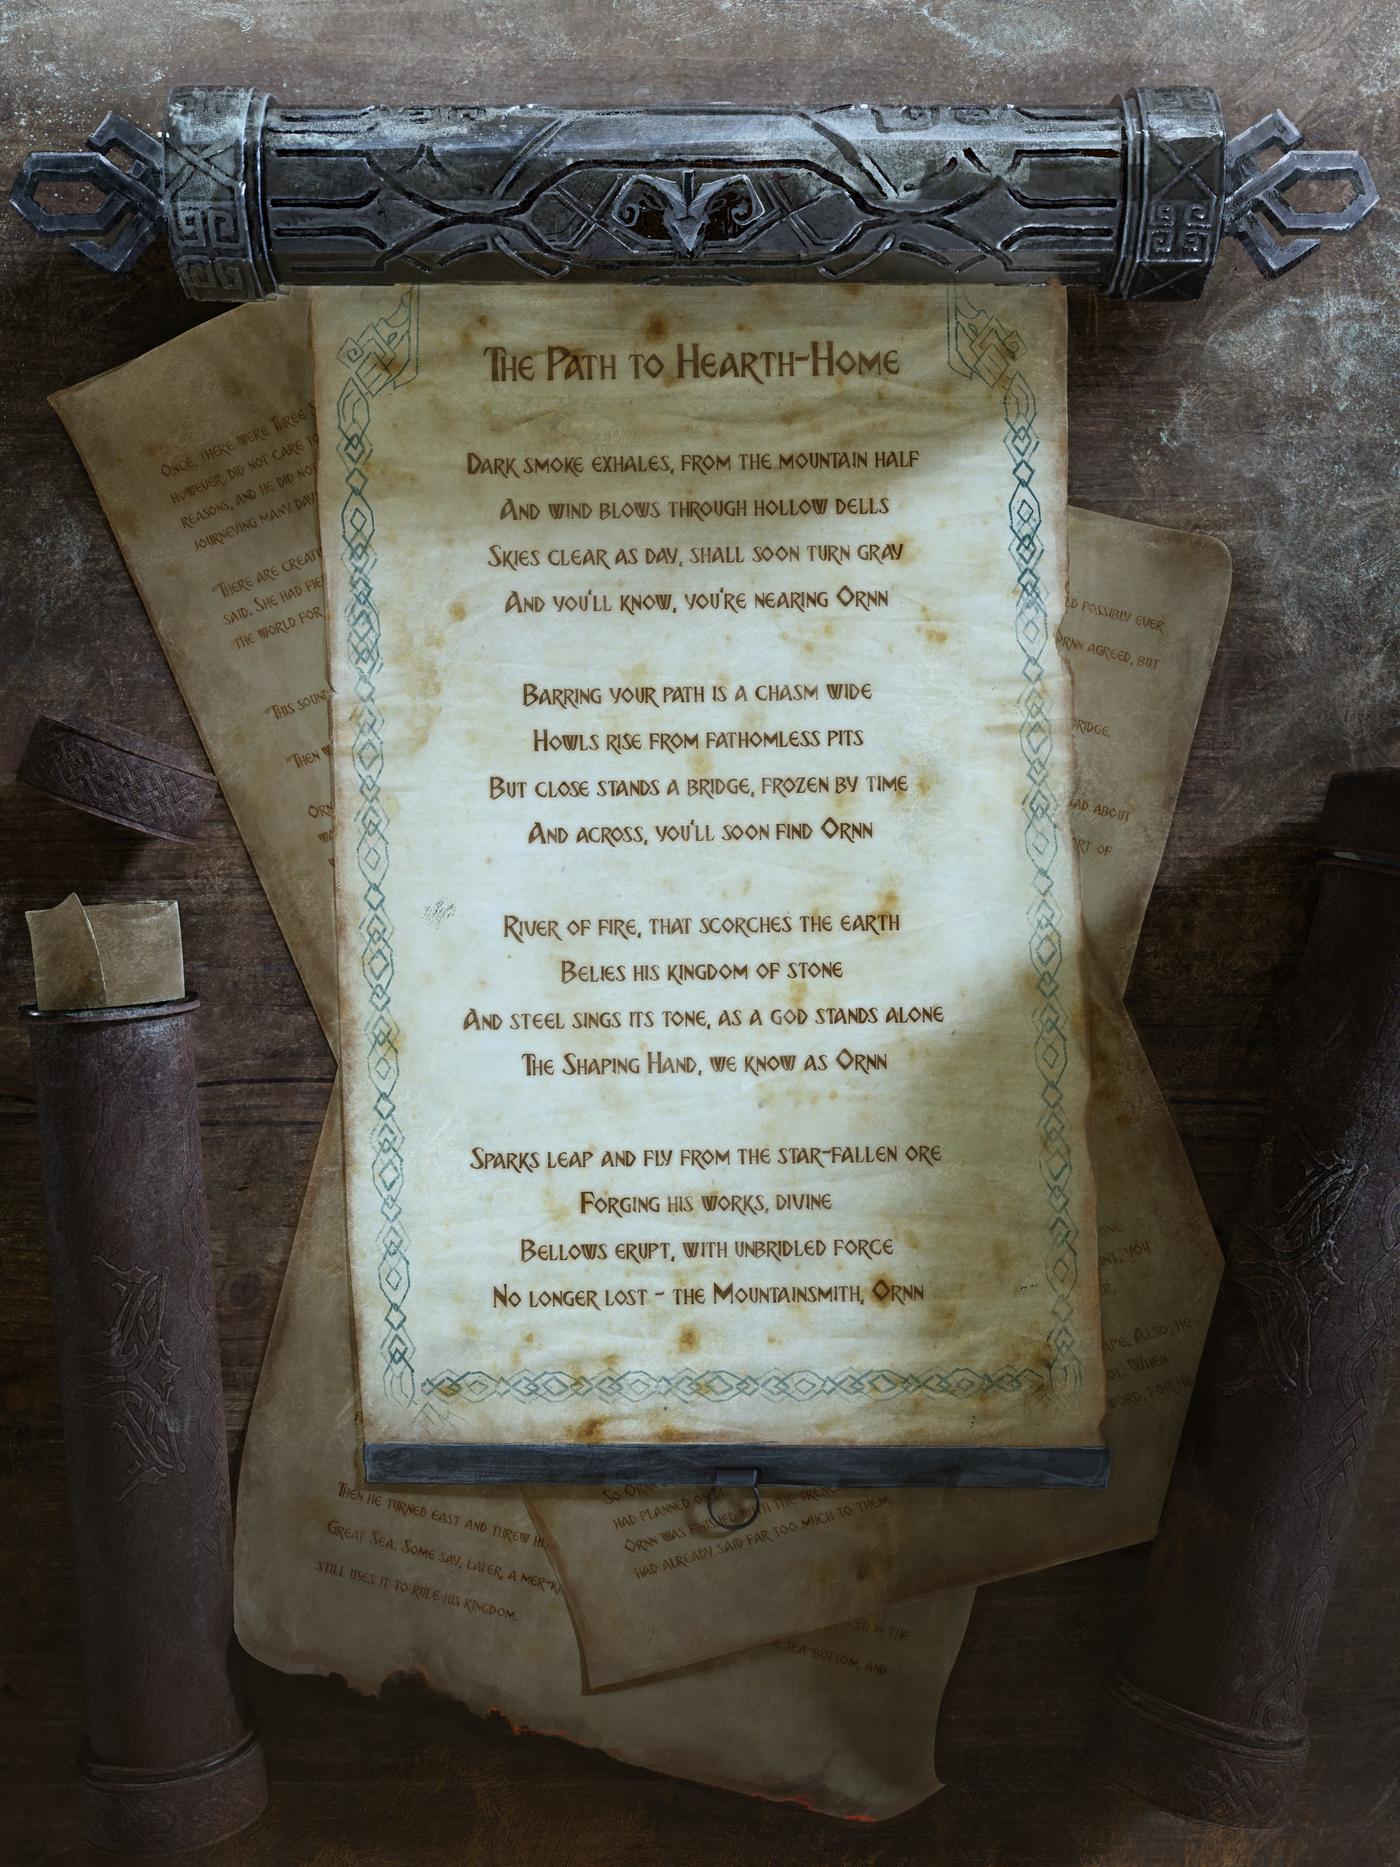 The Path to Hearth-Home
Dark smoke exhales, from the mountain half
And wind blows through hollow dells
Skies clear as day, shall soon turn gray
And you'll know, you're nearing Ornn
Barring your path is a chasm wide
Howls rise from fathomless pits
But close stands a bridge, frozen by time
And across, you'll soon find Ornn
River of fire, that scorches the earth
Belies his kingdom of stone
And steel sings its tone, as a god stands alone
The Shaping Hand, we know as Ornn
Sparks leap and fly from the star-fallen ore
Forging his works, divine
Bellows erupt, with unbridled force
No longer lost - the Mountainsmith, Ornn
Once, there were Three
however, did not care to
reasons, and he did not
journeying many days
"There are creati
said. She had
the world for
"This sound
"Then
possibly ever
Ornn agreed, but
bridge.
about
of
you
Also, he
When
word, for he
Then he turned east and threw
Great Sea. Some say, later, a mer-
still uses it to rule his kingdom.
So
had planned on
Ornn was finished with the
had already said far too much to them,
in the
sea-bottom, and